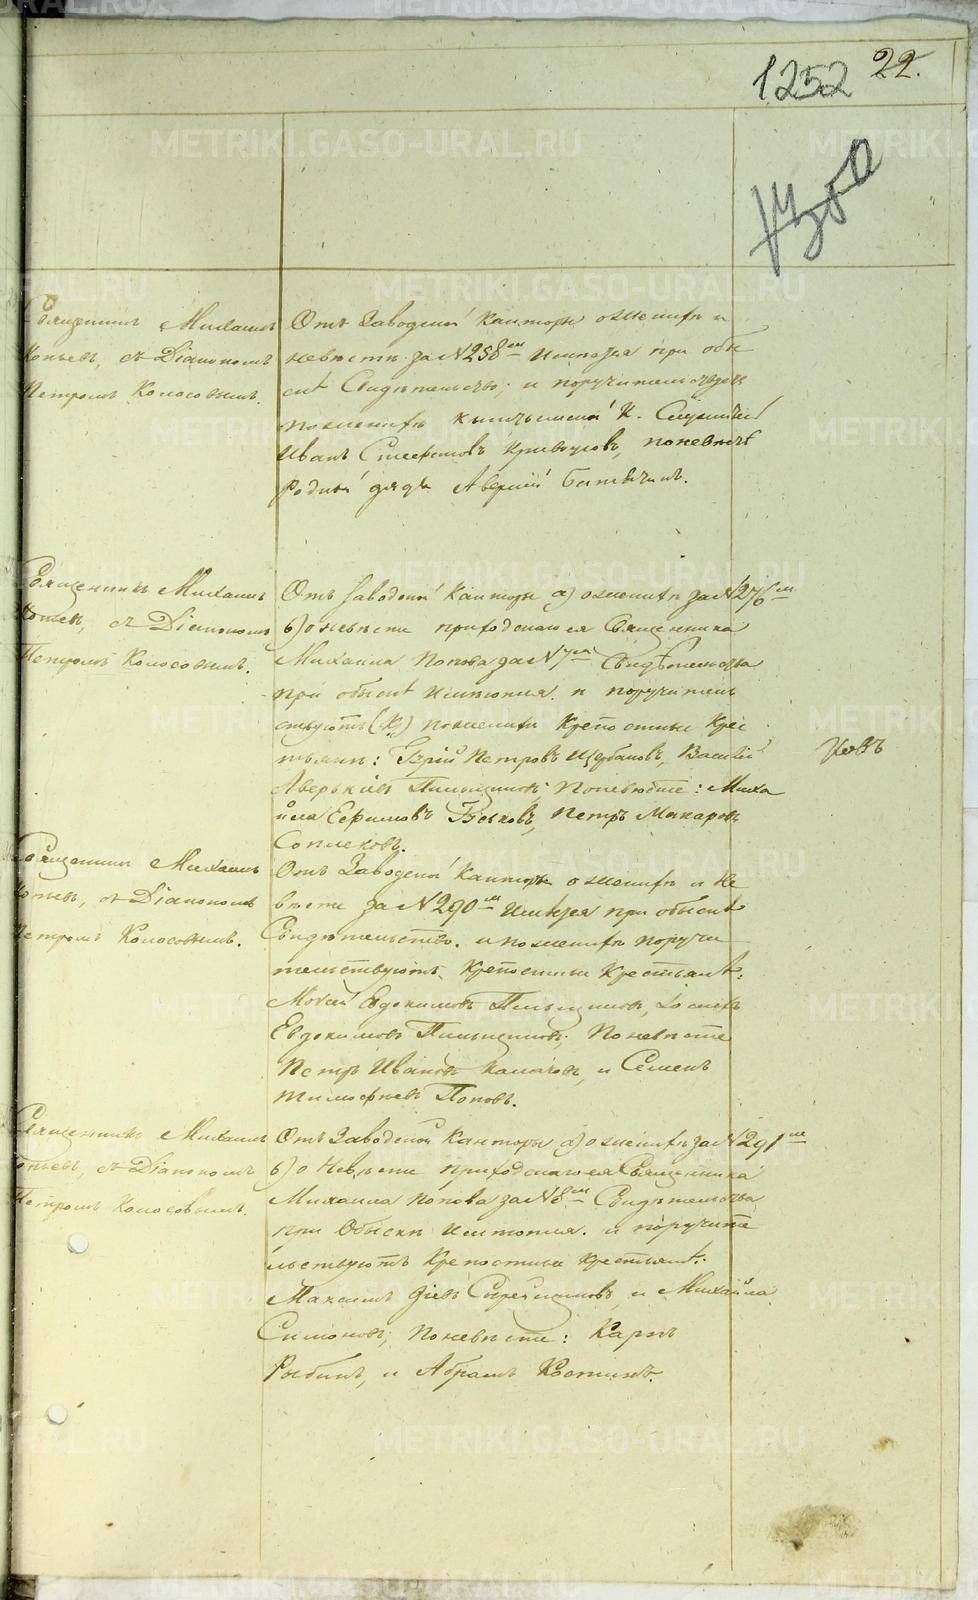 1252 22.
Священникъ Михаилъ
Копьевъ, съ Діакономъ
Петромъ Колосовымъ.
Отъ Заводской Канторы о женихѣ и
невѣстѣ за №258ᵐ имѣется при обы
скѣ Свидѣтельство; и поручительствуютъ
по женихѣ К. Служитель
Иванъ Кривоусовъ, по невѣстѣ
родный дядя Аверкій
Священникъ Михаилъ
Копьевъ, съ Діакономъ
Петромъ Колосовымъ.
Отъ Заводской Канторы а) о женихѣ за №276ᵐ
б) о невѣсти приходскаго ея Священника
Михаила Попова за №7ᵐ Свидѣтельства
при обыскѣ имѣются. и поручитель
ствуютъ по женихѣ Крепостные Крес
тьяни: Петровъ Щербаковъ, Василій
Аверкіевъ по невѣсте: Миха
йла Ефимовъ Быковъ, Петръ Макаровъ
Священникъ Михаилъ
Копьевъ, съ Діакономъ
Петромъ Колосовымъ.
Отъ Заводской Канторы о женихѣ и не
вѣсти за №290ᵐ имѣется при обыскѣ
Свидѣтельство. и по женихѣ поручи
тельствуютъ Крепостные Крестьяне:
Мокей Евдокимовъ
Евдокимовъ по невѣсте
Петръ Ивановъ и Семенъ
Тимофеевъ Поповъ.
Священникъ Михаилъ
Копьевъ, съ Діакономъ
Петромъ Колосовымъ.
Отъ Заводской Канторы а) о женихѣ за №291ᵐ
б) о невѣсти приходскаго ея Священника
Михаила Попова за №8ᵐ Свидѣтельства
при обыскѣ имѣются. и поручите
льствуютъ Крепостные крестьяне:
Максимъ и Михайла
Симоновъ, по невѣсте: Карпъ
Рыбинъ, и Абрамъ Костинъ.
METRIKI.GASO-URAL.RU